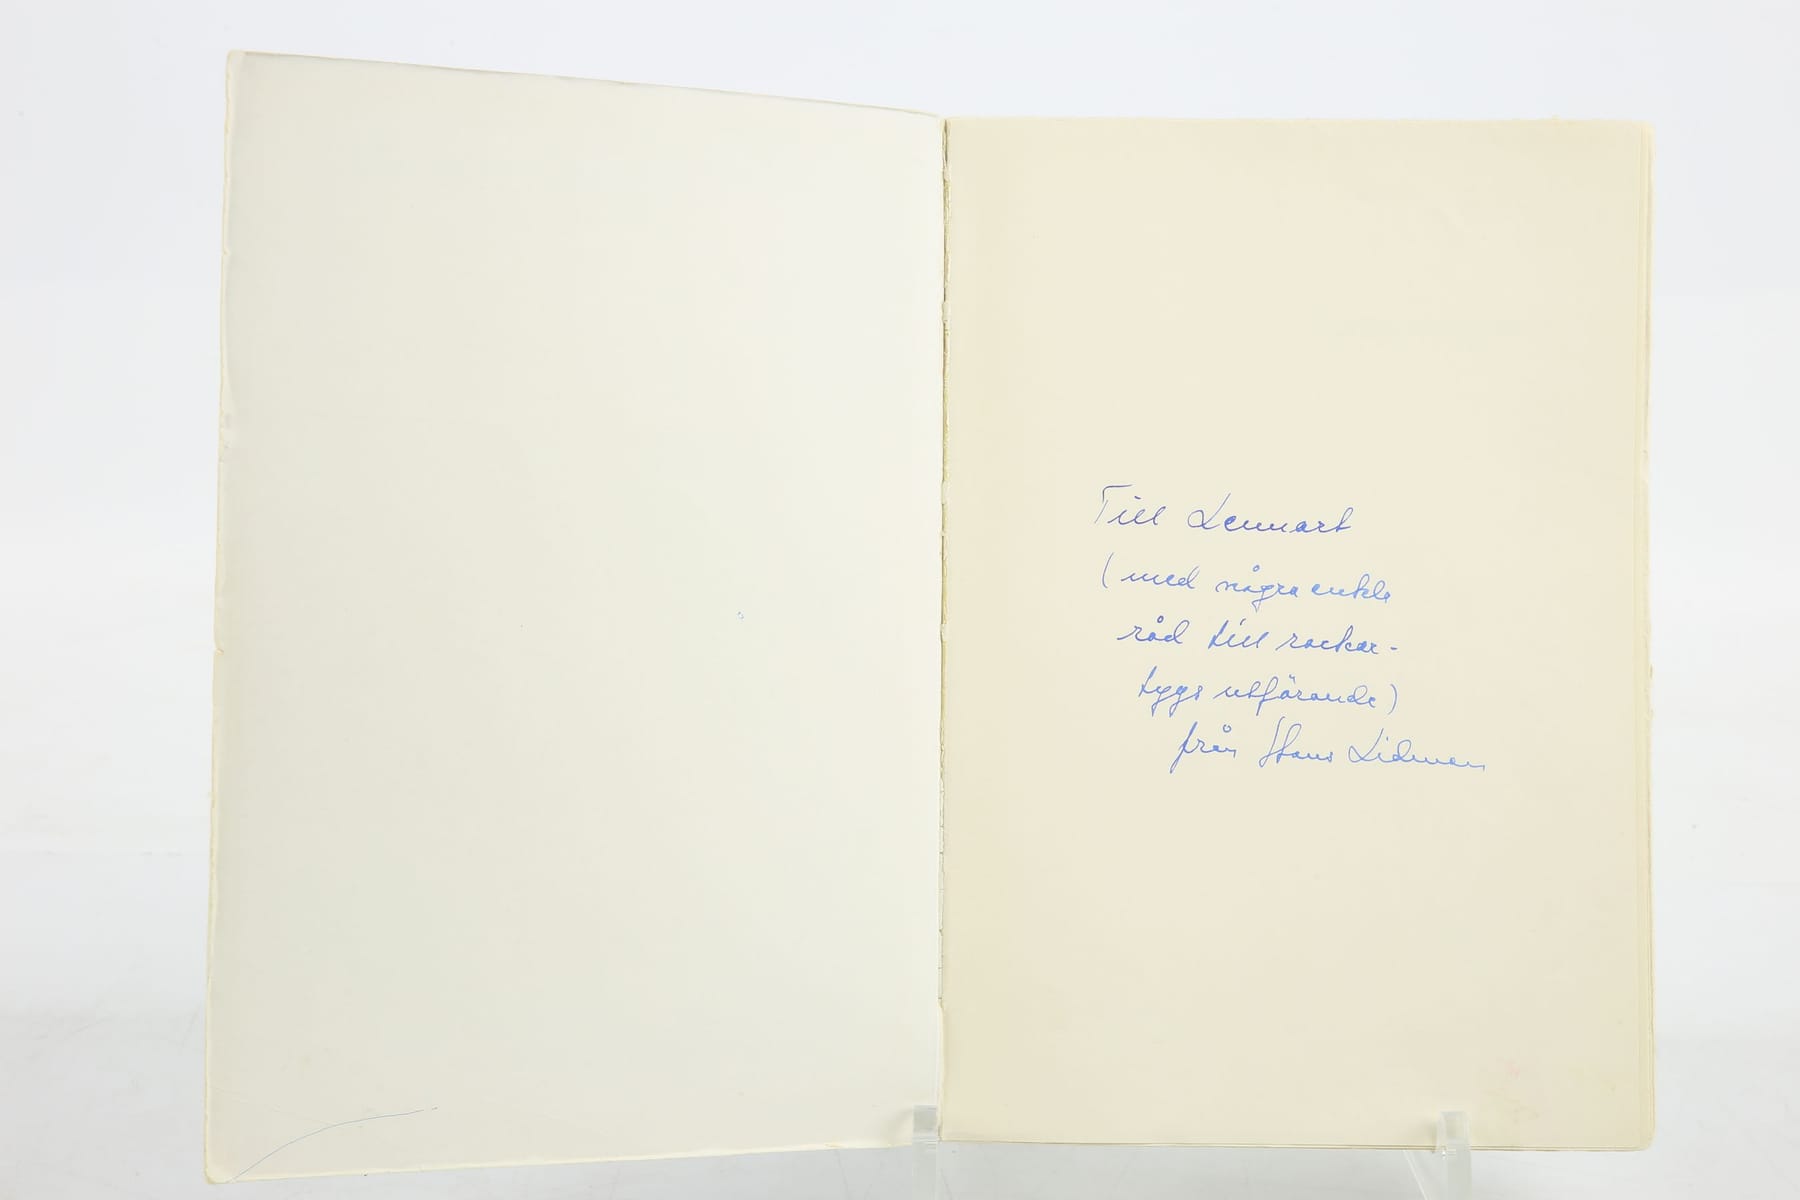 Till Lennart
(med några enkla
råd till rackar-
tygs utförande)
från Hans Lidman